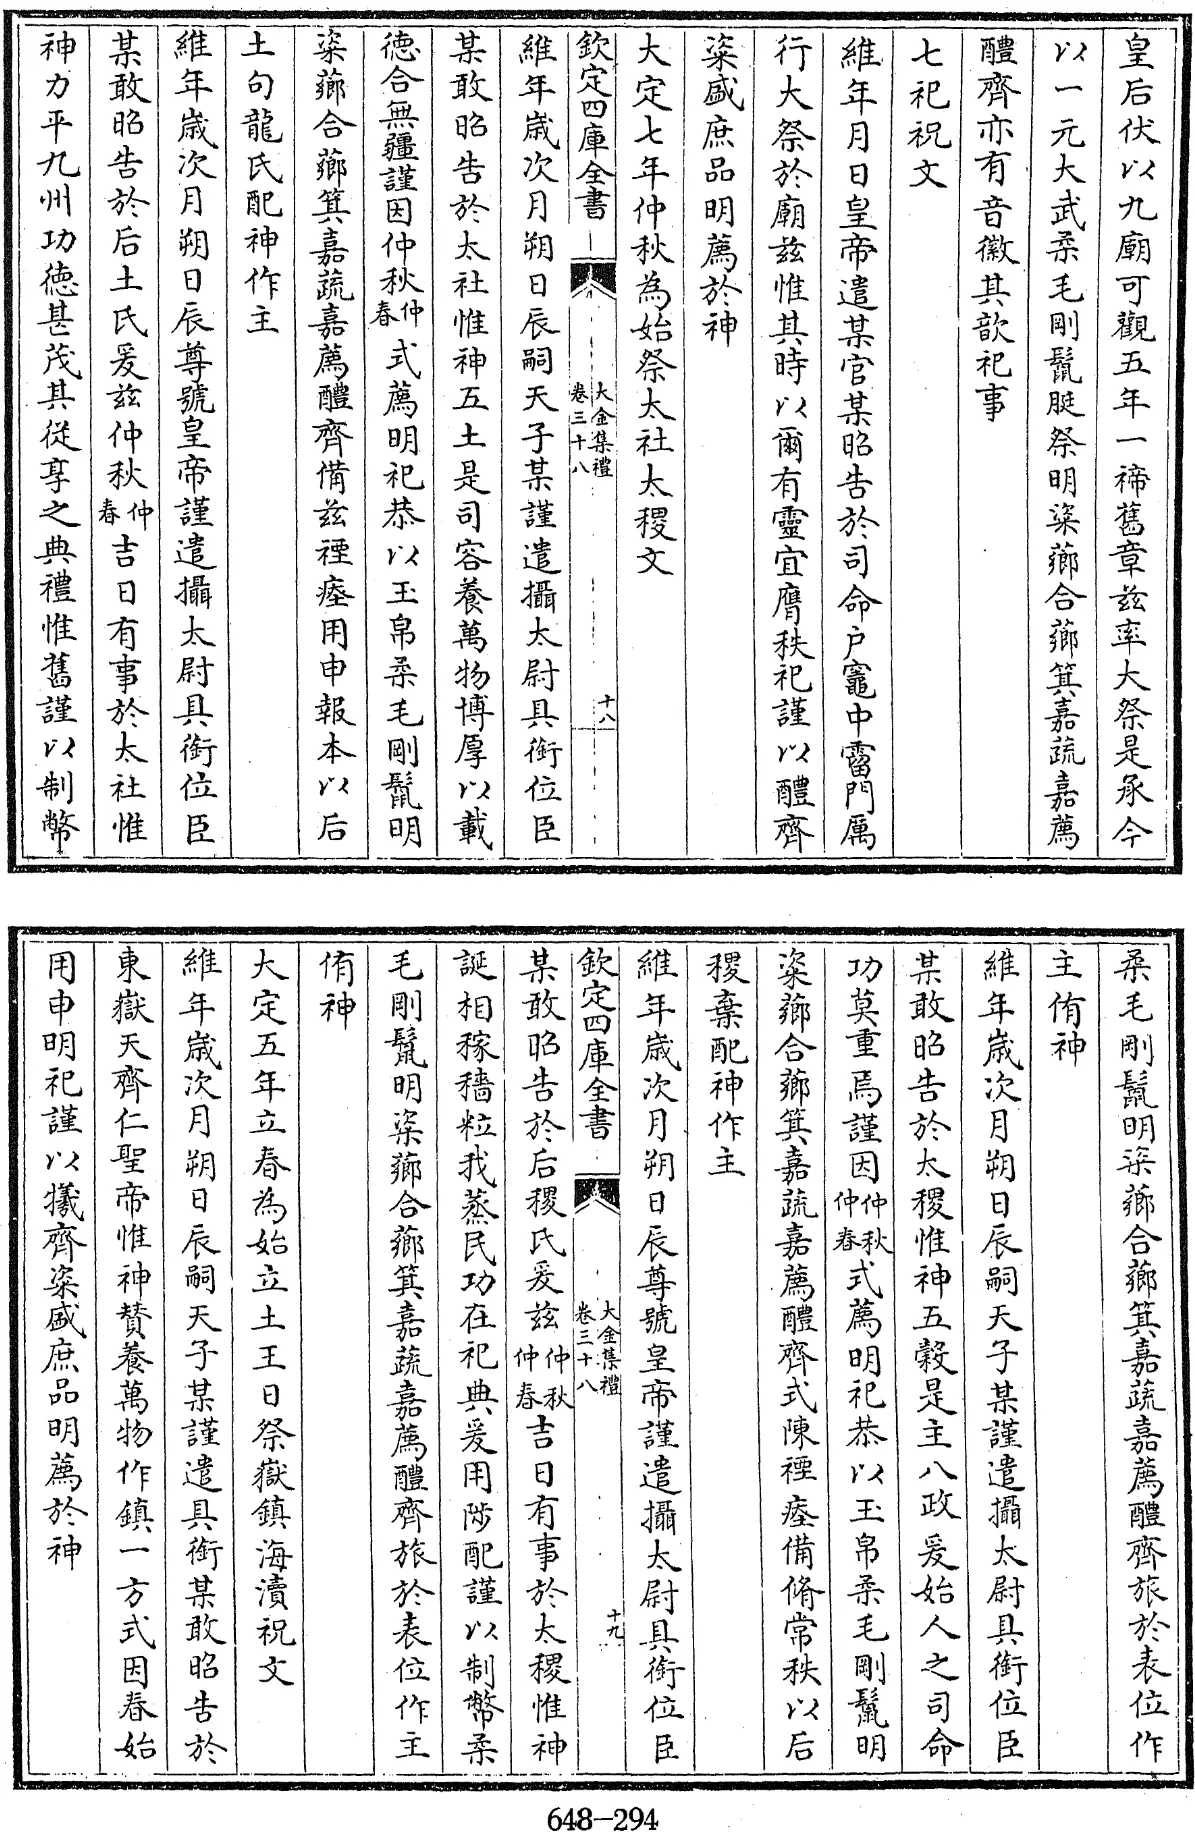 皇后伏以九廟可觀五年一禘舊章兹率大祭是承今
以一元大武柔毛剛鬛脡祭明粢薌合薌箕嘉蔬嘉薦
醴齊亦有音徽其歆祀事
七祀祝文
維年月日皇帝遣某官某昭告於司命户竈中霤門厲
行大祭於廟兹惟其時以爾有靈宜膺秩祀謹以醴齊
粢盛庶品明薦於神
大定七年仲秋為始祭太社太稷文
欽定四庫全書
大金集禮
卷三十八
十八
維年歲次月朔日辰嗣天子某謹遣攝太尉具銜位臣
某敢昭告於太社惟神五土是司容養萬物博厚以載
德合無疆謹因仲秋仲春式薦明祀恭以玉帛柔毛剛鬛明
粢薌合薌箕嘉蔬嘉薦醴齊備兹禋瘞用申報本以后
土句龍氏配神作主
維年歲次月朔日辰尊號皇帝謹遣攝太尉具銜位臣
某敢昭告於后土氏爰兹仲秋仲春吉日有事於太社惟
神力平九州功德甚茂其從享之典禮惟舊謹以制幣
柔毛剛鬛明粢薌合薌箕嘉蔬嘉薦醴齊旅於表位作
主侑神
維年歲次月朔日辰嗣天子某謹遣攝太尉具銜位臣
某敢昭告於太稷惟神五穀是主八政爰始人之司命
功莫重焉謹因仲秋仲春式薦明祀恭以玉帛柔毛剛鬛明
粢薌合薌箕嘉蔬嘉薦醴齊式陳禋瘞備脩常秩以后
稷棄配神作主
維年歲次月朔日辰尊號皇帝謹遣攝太尉具銜位臣
欽定四庫全書
大金集禮
卷三十八
十九
某敢昭告於后稷氏爰兹仲秋仲春吉日有事於太稷惟神
誕相稼穡粒我蒸民功在祀典爰用陟配謹以制幣柔
毛剛鬛明粢薌合薌箕嘉蔬嘉薦醴齊旅於表位作主
侑神
大定五年立春為始立土王日祭嶽鎮海瀆祝文
維年歲次月朔日辰嗣天子某謹遣具銜某敢昭告於
東嶽天齊仁聖帝惟神贊養萬物作鎮一方式因春始
用申明祀謹以犧齊粢盛庶品明薦於神
648-294